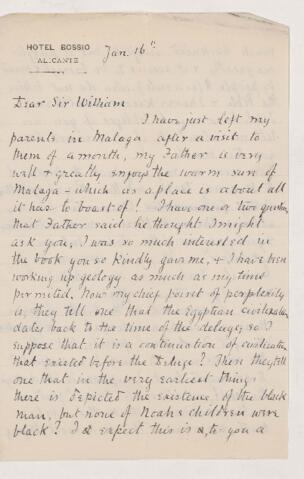 HOTEL BOSSIO
ALICANTE
Jan. 16th
Dear Sir William
I have just left my
parents in Malaga after a visit to
them of a month, my Father is very
well & greatly enjoys the warm sun of
Malaga - which as a place is about all
it has to boast of! I have one or two questions
that Father said he thought I might
ask you, I was so much interested in
the book you so kindly gave me, & I have been
working up geology as much as my time
permitted. Now my chief point of perplexity
is, they tell one that the Egyptian civilisation
dates back to the time of the deluge, so I
suppose that it is a continuation of civilisation
that existed before the Deluge? Then they tell
one that in the very earliest things
there is depicted the existence of the black
man, but none of Noahs children were
black? I expect this is to you a